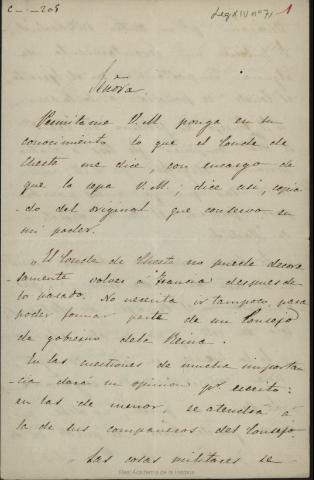 C-·-208
Leg XIV nº 71
1
Señora.
Permitame V.M. ponga en su
conocimiento lo que el Conde de
Cheste me dice, con encargo de
que lo sepa V.M.; dice asi, copia-
do del original que conservo en
mi poder.
"El Conde de Cheste no puede decoro-
samente volver á Francia despues de
lo pasado. No necesita ir tampoco, para
poder formar parte de un Consejo
de gobierno de la Reina.
En las cuestiones de mucha importan-
cia dará su opinion pr. escrito:
en las de menor, se atendrá á
la de sus compañeros del Consejo.
Las cosas militares se
Real Academia de la Historia